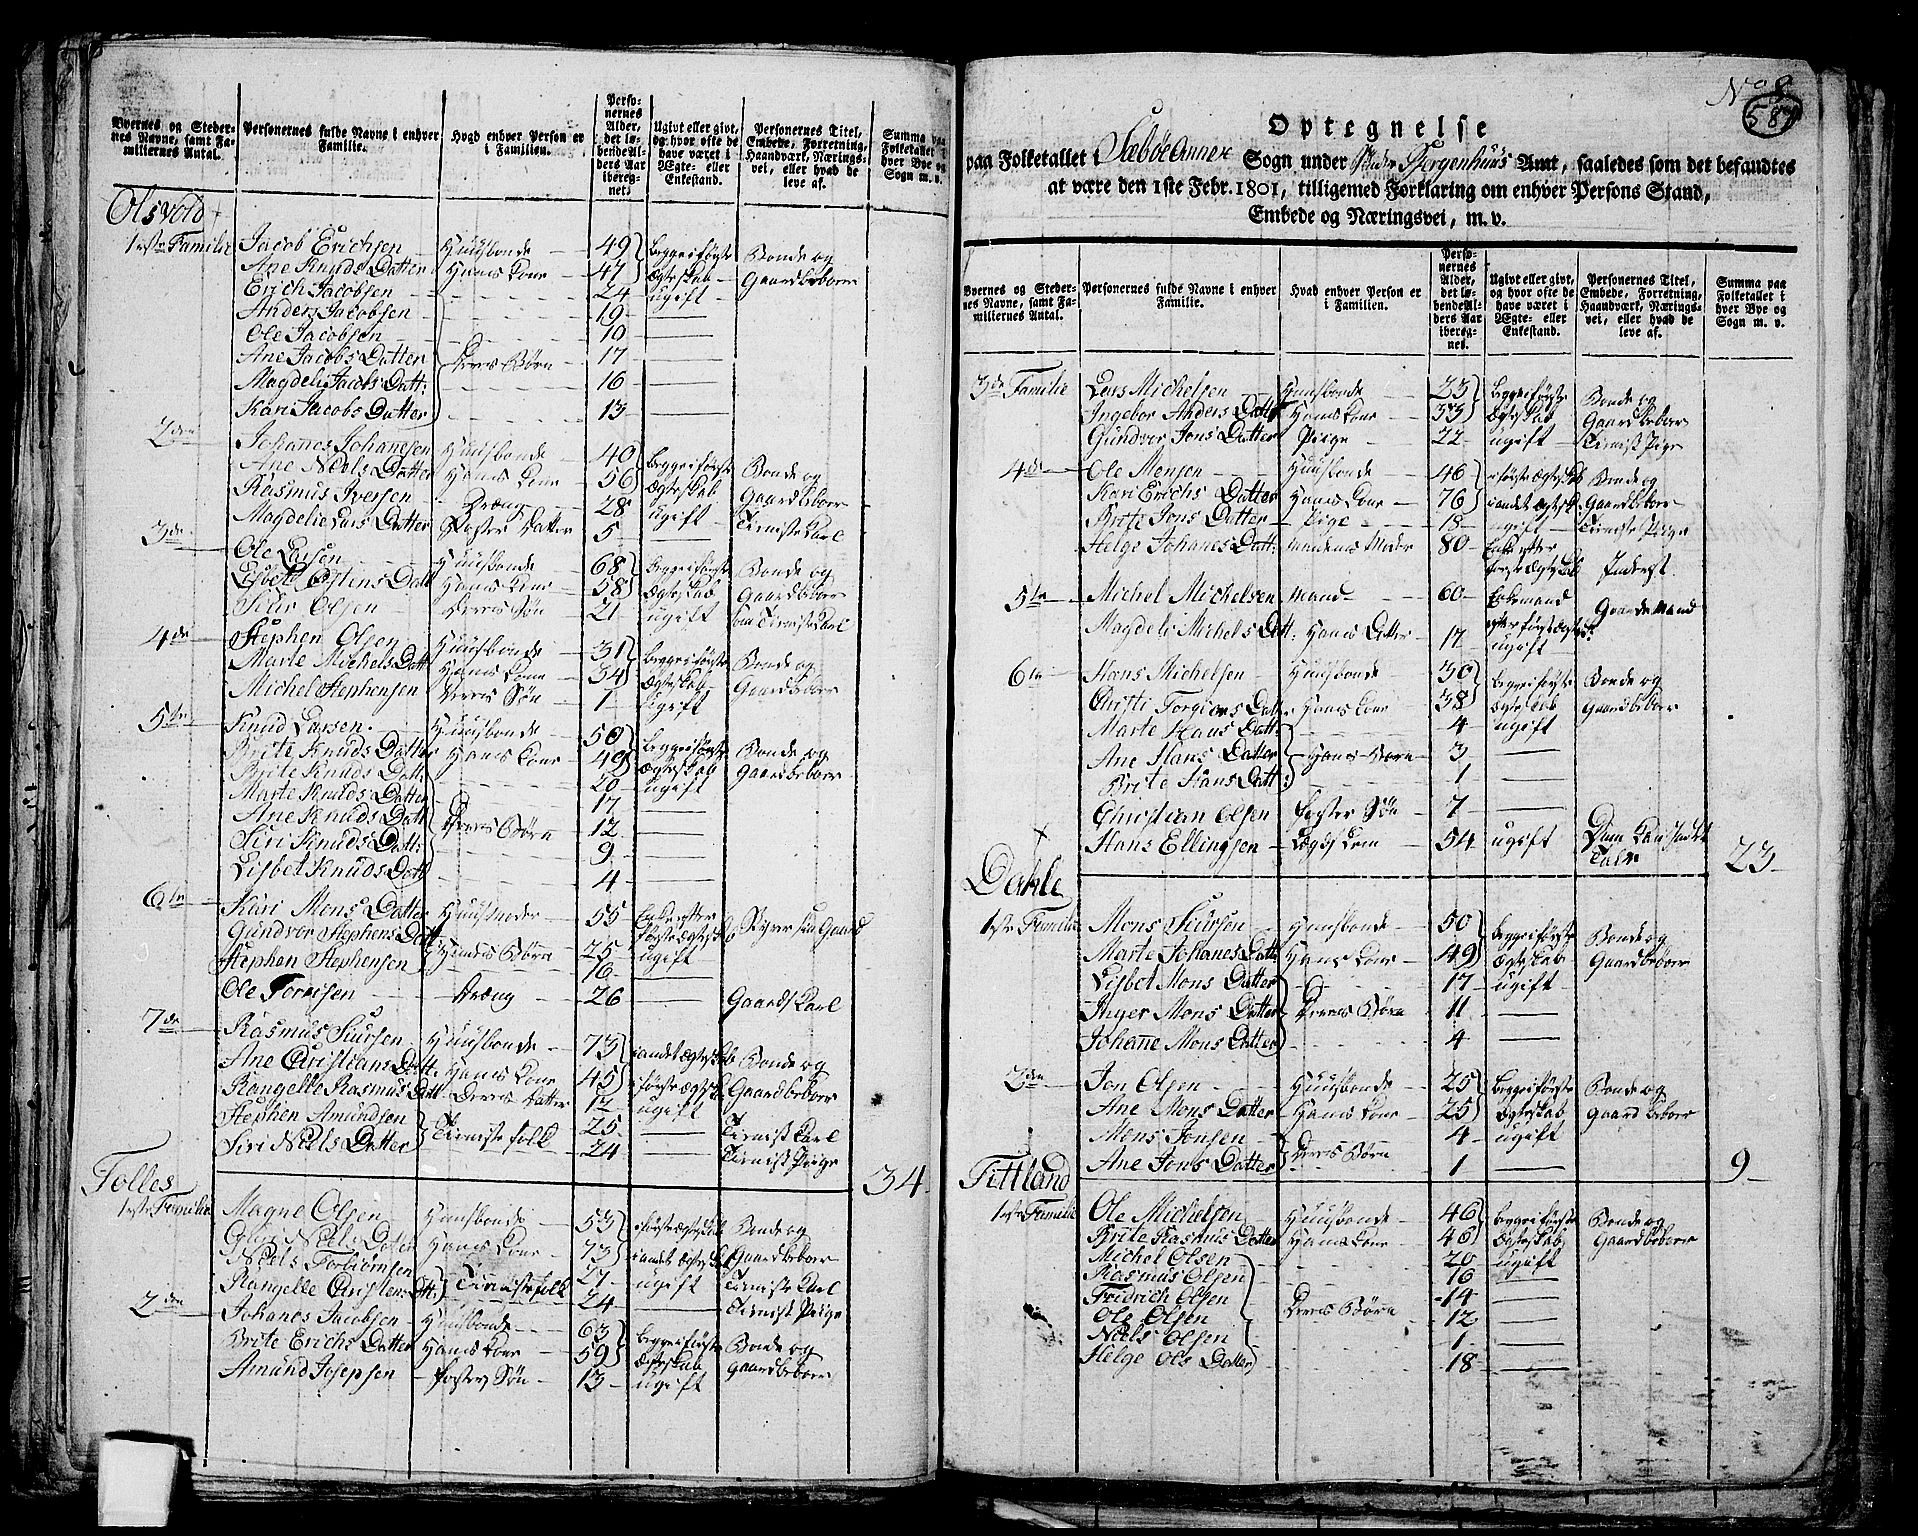 Byernes og Steder-
nes Navne, samt Fa-
miliernes Antal.
Personernes fulde Navne i enhver
Familie.
Hvad enhver Person er
i Familien.
Perso-
nernes
Alder,
det lø-
bende Al-
ders Aar
iberegnet.
Ugivt eller givt,
og hvor ofte de
have været i
Ægte- eller
Enkestand.
Personernes Titel,
Embede, Forretning,
Haandværk, Nærings-
vei, eller hvad de
leve af.
Summa paa
Folketallet i
hver Bye og
Sogn m. v.
Olsvold
1ste Familie Jacob Erichsen Huusbonde 49 begge i første Bonde og
Ane Knuds Datter Hans Kone 47 Ægteskab Gaardbeboer
Erich Jacobsen 24 ugift
Anders Jacobsen 19
Ole Jacobsen 10
Ane Jacobs Datter Deres Børn 17
Magdeli Jacobs Datt: 16
Kari Jacobs Datter 13
2den Johanes Johanesen Huusbonde 40 begge i første Bonde og
Ane Niels Datter Hans Kone 56 Ægteskab Gaardbeboer
Rasmus Iversen Dräng 28 ugift Tieniste Karl
Magdelie Lars Datter Foster Datter 5
3de Ole Larsen Huusbonde 68 begge i første Bonde og
Lisbet Østens Datt Hans Kone 58 Ægteskab Gaardbeboer
Siur Olsen Deres Søn 21 ugift som Tienist Karl
4de Stephen Olsen Huusbonde 31 begge i første Bonde og
Marte Michels Datt Hans Kone 34 Ægteskab Gaardbeboer
Michel Stephensen Deres Søn 1 ugift
5te Knud Larsen Huusbonde 50 begge i første Bonde og
Brite Knuds Datter Hans Kone 49 Ægteskab Gaardbeboer
Brite Knuds Datt: 20 ugift
Marte Knuds Datter 17
Ane Knuds Datt Deres Børn 12
Siri Knuds Datt: 9
Lisbet Knuds Datt 4
6te Kari Mons Datter Huusmoder 55 Enke efter første Ægteskab Gaard
Gundvor Stephens Datt Hendes Børn 25 ugift
Stephen Stephensen 16
Ole Torrisen Dräng 26 Gaards Karl
7de Rasmus Siursen Huusbonde 73 i andet Ægteskab Bonde og
Ane Christians Datt. Hans Kone 45 i første Ægtesk: Gaardbeboer
Rangelle Rasmus Datt Deres Datter 12 ugift
Stephen Amundsen Tieniste folk 25 Tienist Karl
Siri Niels Datter 24 Tienist Piige
34
Tolles
1ste Familie Magne Olsen Huusbonde 53 i første Ægteskab Bonde og
Niels Datter Hans Kone 73 i andet Ægteskab Gaardbeboer
Niels Torbiörnsen Tieniste folk 27 ugift Tieniste Karl
Rangelle Christens Datt: 24 Tienist Piige
2den Johanes Jacobsen Huusbonde 63 begge i første Bonde og
Brite Erichs Datter Hans Kone 59 Ægteskab Gaardbeboer
Amund Josepsen foster Søn 13 ugift
No 8
587
Optegnelse
paa Folketallet i Sæböe Annex Sogn under Søndre Bergenhuus Amt, saaledes som det befandtes
at være den 1ste Febr. 1801, tilligemed Forklaring om enhver Persons Stand,
Embede og Næringsvei, m. v.
Byernes og Steder-
nes Navne, samt Fa-
miliernes Antal.
Personernes fulde Navne i enhver
Familie.
Hvad enhver Person er
i Familien.
Perso-
nernes
Alder,
det lø-
bende Al-
ders Aar
iberegnet.
Ugivt eller givt,
og hvor ofte de
have været i
Ægte- eller
Enkestand.
Personernes Titel,
Embede, Forretning,
Haandværk, Nærings-
vei, eller hvad de
leve af.
Summa paa
Folketallet i
hver Bye og
Sogn m. v.
3de Familie Lars Michelsen Huusbonde 23 begge i første Bonde og
Ingebor Anders Datter Hans Kone 33 Ægteskab Gaardbeboer
Gundvor Jons Datter Piige 22 ugift Tienist Pige
4de Ole Monsen Huusbonde 46 i første Ægteskab Bonde og
Kari Erichs Datter Hans Kone 76 i andet Ægtesk. Gaardbeboer
Brite Jons Datter Pige 18 ugift Tieniste Piige
Helge Johanes Datt: Mandens Moder 80 Enke efter
første Ægteskab Inderst
5te Michel Michelsen Mand 60 Enkemand Gaardemand
efter første Ægtesk:
Magdeli Michels Datt: Hans Datter 17 ugift
6te Hans Michelsen Huusbonde 30 begge i første Bonde og
Christi Torgiers Datt: Hans Kone 38 Ægteskab Gaardbeboer
Marte Hans Datt: 4 ugift
Ane Hans Datter Hans Børn 3
Brite Hans Datt: 1
Christian Olsen foster Søn 7
Hans Ellingsen Lægds Lem 54 ugift
23
Dahle
1ste Familie Mons Siursen Huusbonde 50 begge i første Bonde og
Marte Johanes Datter Hans Kone 49 Ægteskab Gaardbeboer
Lisbet Mons Datter 17 ugift
Inger Mons Datter Deres Børn 11
Johanne Mons Datter 4
2den Jon Olsen Huusbonde 25 begge i første Bonde og
Ane Mons Datter Hans Kone 25 Ægteskab Gaardbeboer
Mons Jonsen Deres Børn 4 ugift
Ane Jons Datter 1
9
Titland
1ste Familie Ole Michelsen Huusbonde 46 begge i første Bonde og
Brite Rasmus Datter Hans Kone 46 Ægteskab Gaardbeboer
Michel Olsen 20 ugift
Rasmus Olsen 16
Fridrich Olsen 14
Ole Olsen Deres Børn 12
Niels Olsen 1
Helge Ols Datter 18